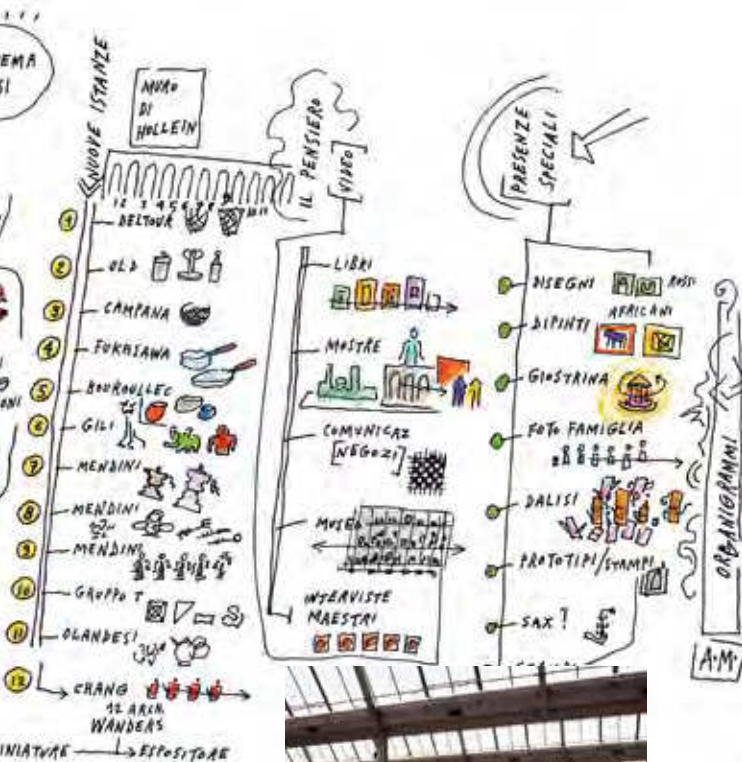 NUOVE ISTANZE
MURO
DI
HOLLEIN
1 DELTOUR
2 OLD
3 CAMPANA
4 FUKASAWA
5 BOUROULLEC
6 GILI
7 MENDINI
8 MENDINI
9 MENDINI
10 GRUPPO T
11 OLANDESI
12 CHANG
12 ARCH.
WANDERS
ESPOSITORE
IL PENSIERO
[VIDEO]
LIBRI
MOSTRE
COMUNICAZ
[NEGOZI]
MUSEO
INTERVISTE
MAESTRI
PRESENZE
SPECIALI
DISEGNI ROSSI
AFRICANI
DIPINTI
GIOSTRINA
FOTO FAMIGLIA
DALISI
PROTOTIPI/STAMPI
SAX?
ORGANIGRAMMI
A.M.